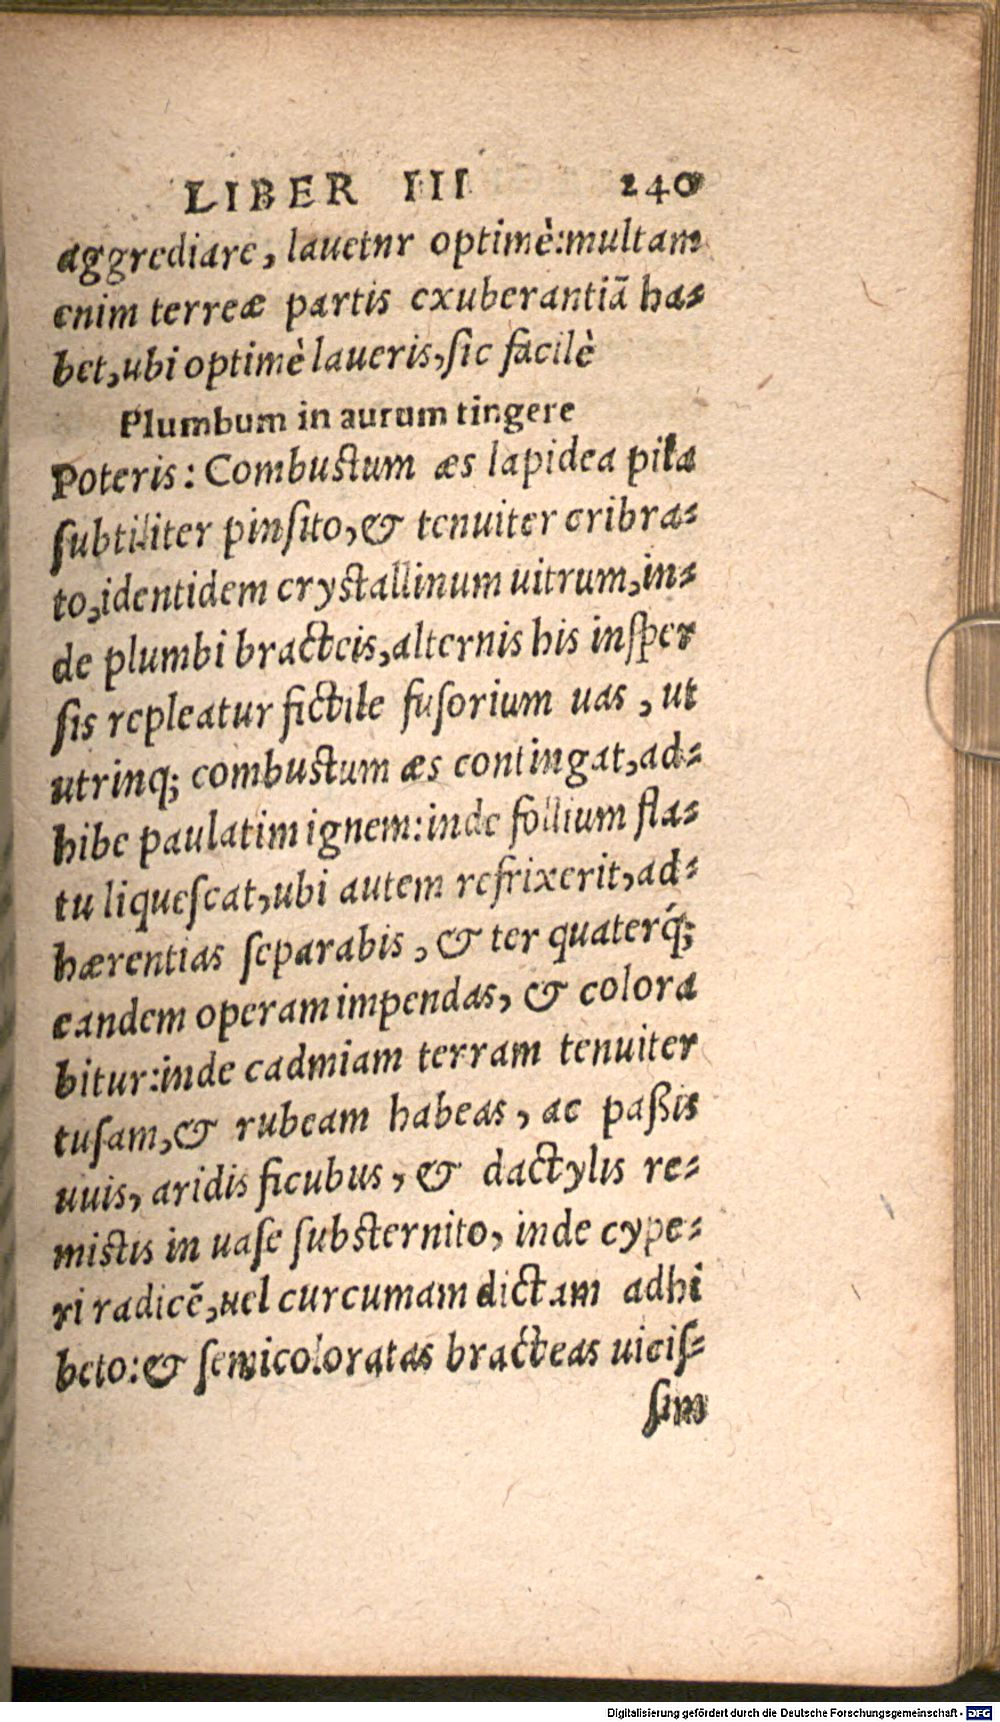 LIBER III 240
aggrediare, lauetnr optimè:multam
enim terreæ partis exuberantiã ha-
bet,ubi optimè laueris,sic facilè
Plumbum in aurum tingere
Poteris: Combustum æs lapidea pila
subtiliter pinsito,& tenuiter cribra-
to,identidem crystallinum uitrum,in-
de plumbi bracteis,alternis his insper
sis repleatur fictile fusorium uas , ut
utrinq; combustum æs contingat,ad-
hibe paulatim ignem:inde follium fla-
tu liquescat,ubi autem refrixerit,ad-
hærentias separabis , & ter quaterq́;
eandem operam impendas, & colora
bitur:inde cadmiam terram tenuiter
tusam,& rubeam habeas , ac paßis
uuis, aridis ficubus , & dactylis re-
mistis in uase substernito, inde cype-
ri radicẽ,uel curcumam dictam adhi
beto:& semicoloratas bracteas uicis-
sim
Digitalisierung gefördert durch die Deutsche Forschungsgemeinschaft - DFG